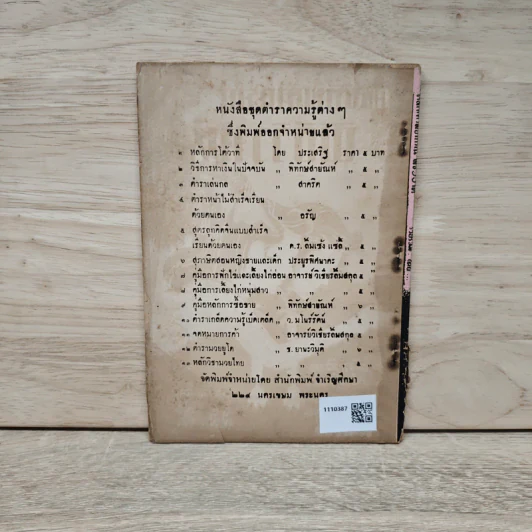 หนังสือชุดตำราความรู้ต่าง ๆ
ซึ่งพิมพ์ออกจำหน่ายแล้ว
๑ หลักการโต้วาที โดย ประเสริฐ ราคา ๕ บาท
๒ วิธีการหาเงินในปัจจุบัน ,, พิทักษ์สายัณห์ ,, ๕ ,,
๓ ตำราเล่นกล ,, สาคริต ,, ๕ ,,
๔ ตำราหน้าไม้สำเร็จเรียน
ด้วยตนเอง ,, อรัญ ,, ๕ ,,
๕ สูตรลูกคิดจีนแบบสำเร็จ
เรียนด้วยตนเอง ,, ด.ร. ลิ้มเซ้ง แซ่ลี้ ,, ๕ ,,
๖ สุภาษิตสอนหญิงชายและเด็ก ประยูรพิศนาคะ ,, ๕ ,,
๗ คู่มือการฟักไข่และเลี้ยงไก่อ่อน อาจารย์ วิเชียรลิ้มสกุล ๕ ,,
๘ คู่มือการเลี้ยงไก่หนุ่มสาว ,, ,, ๕ ,,
๙ คู่มือหลักการซื้อขาย พิทักษ์สายัณห์ ,, ๖ ,,
๑๐ ตำราเกล็ดความรู้เบ็ดเตล็ด ,, ว. มโนรัตน์ ,, ๕ ,,
๑๑ จดหมายการค้า อาจารย์วิเชียรลิ้มสกุล ๕ ,,
๑๒ ตำรามวยยูโด ,, ช. ยานะวิมุติ ,, ๖ ,,
๑๓ หลักวิชามวยไทย ,, ,, ๕ ,,
จัดพิมพ์จำหน่ายโดย สำนักพิมพ์ จำเริญศึกษา
๒๒๔ นครเขษม พระนคร
1110387